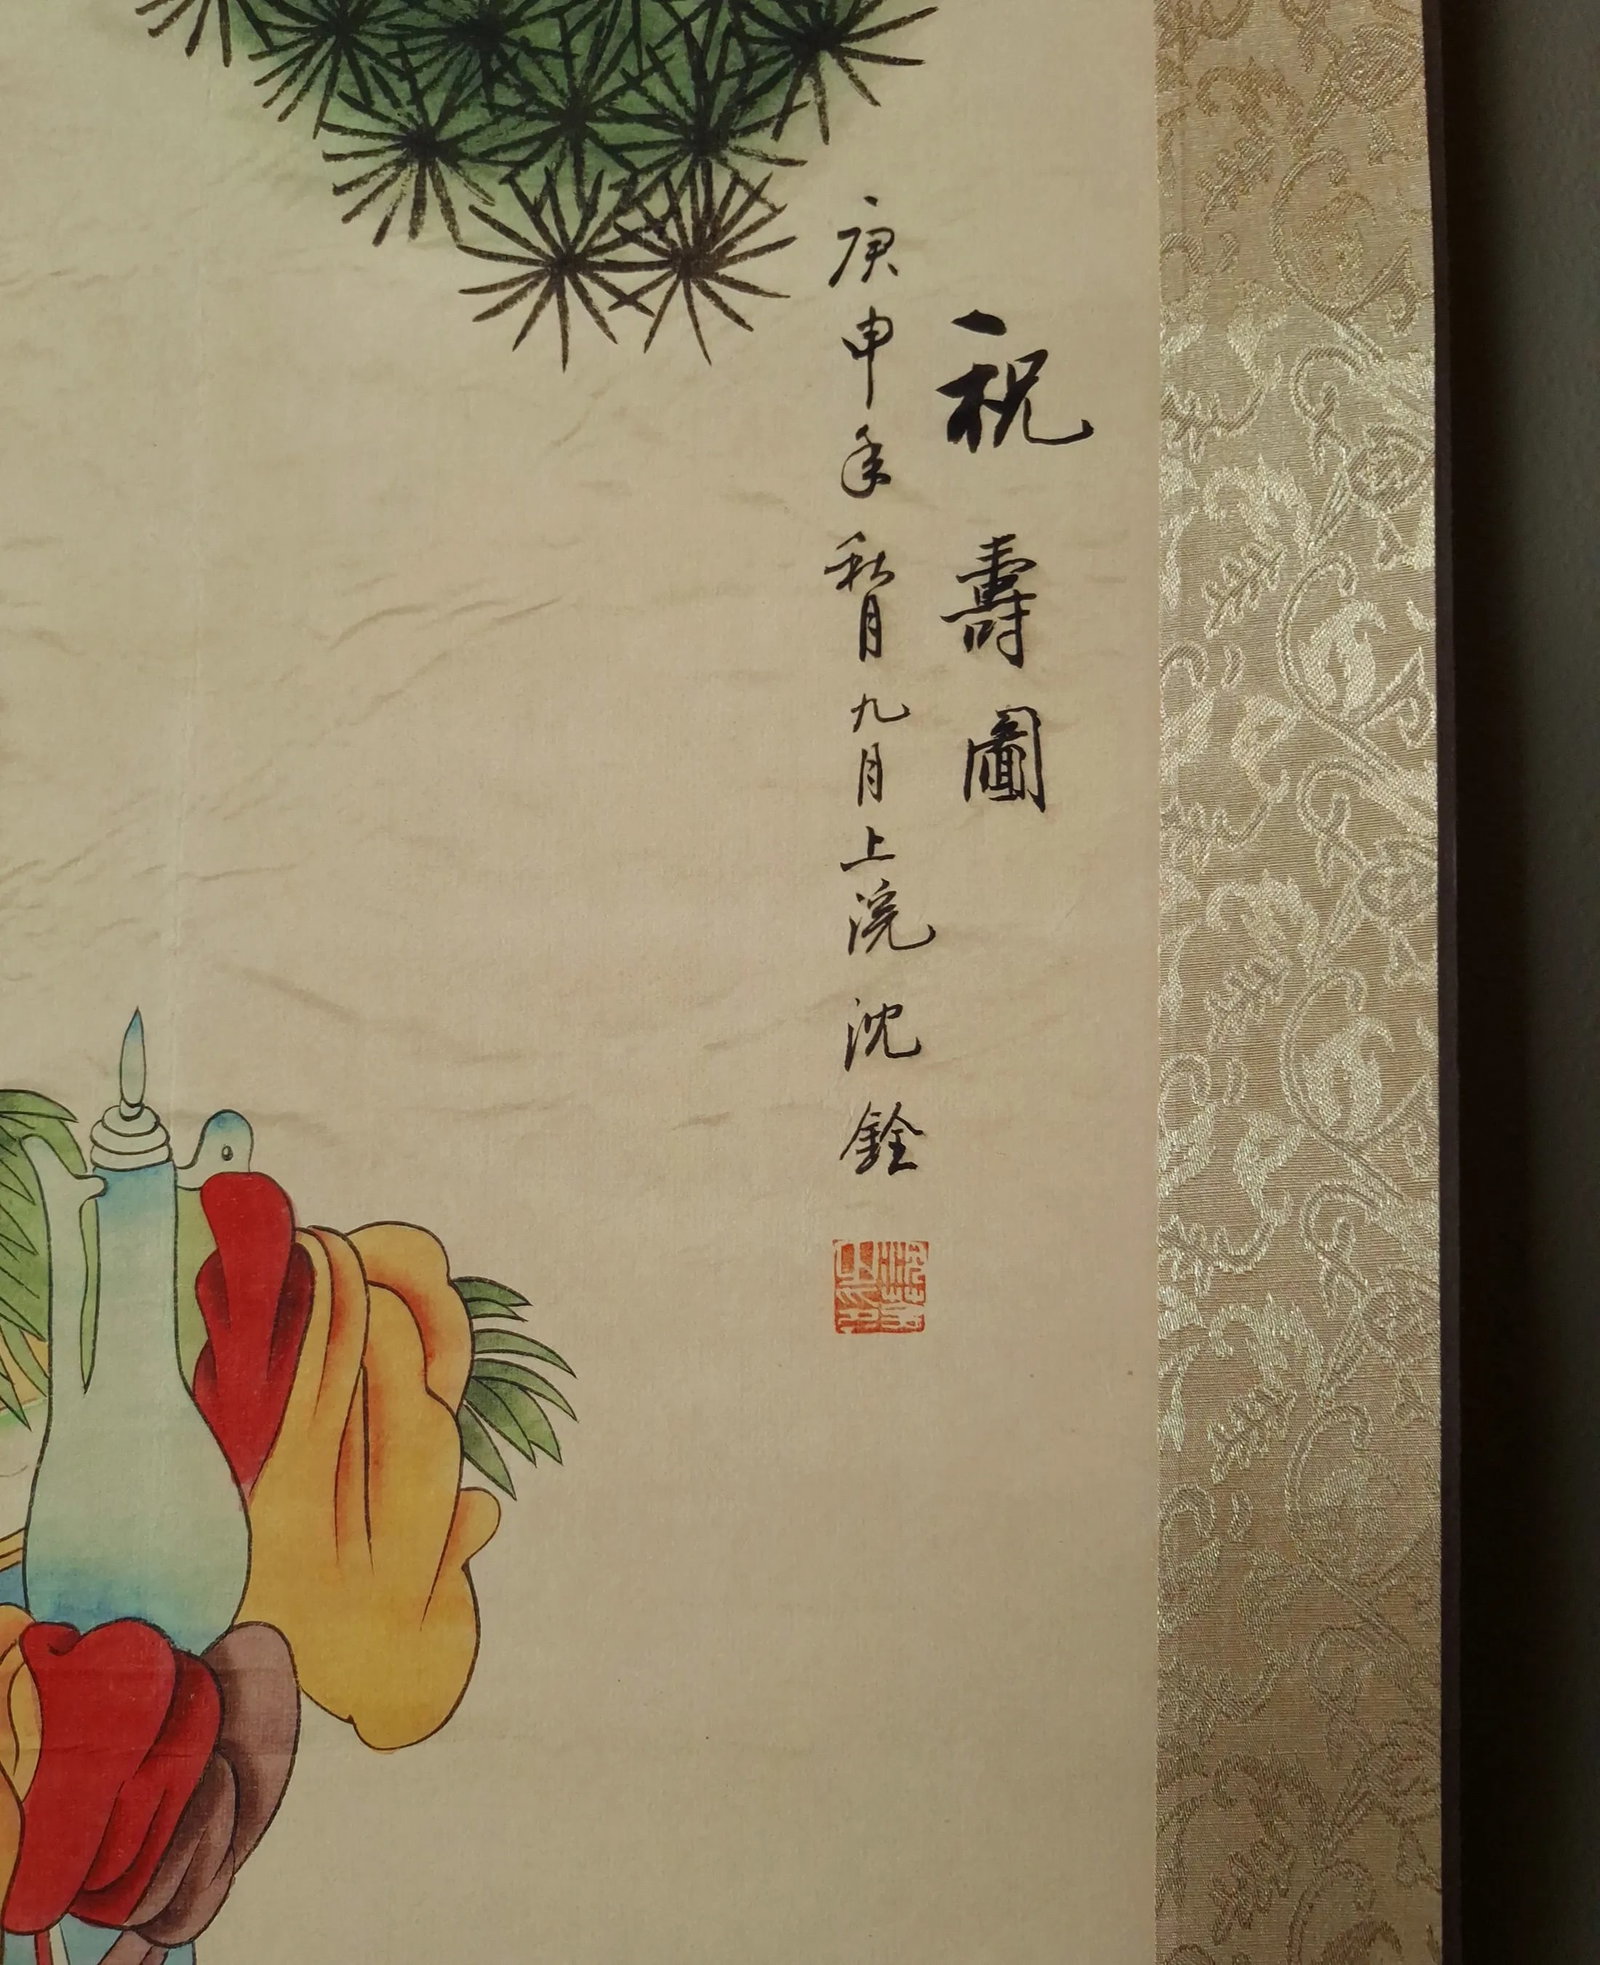 祝壽圖
庚申年秋月九月上浣沈銓